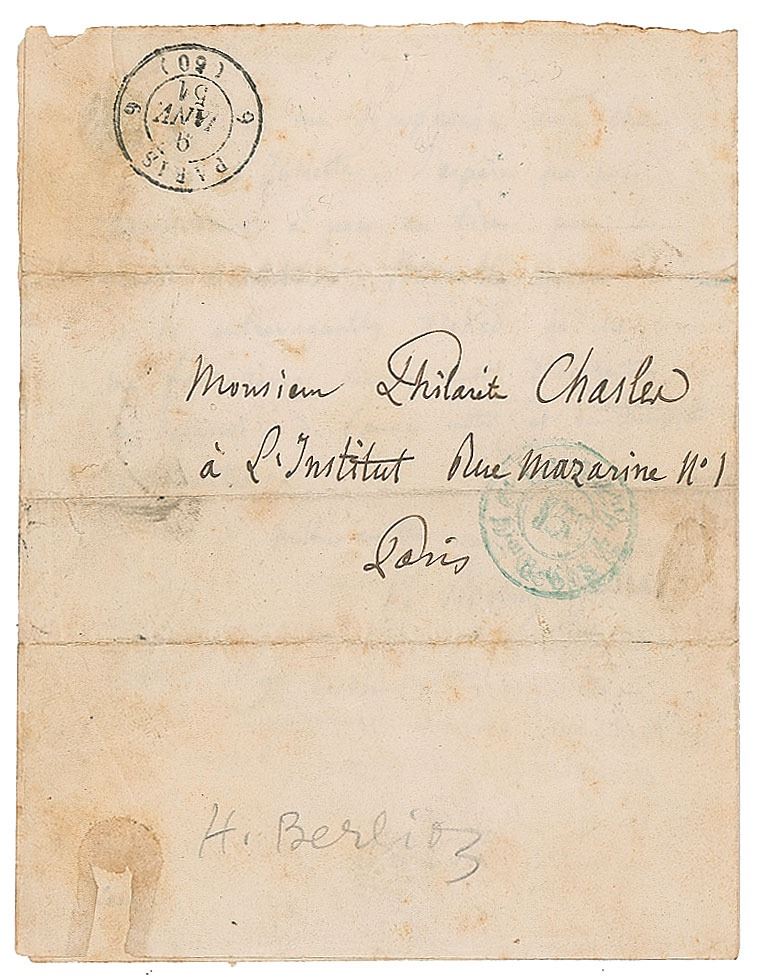 PARIS
9
JANV.
51
(60)
6 6
Monsieur Philarète Chasles
à L'Institut Rue Mazarine N° 1
Paris
H. Berlioz